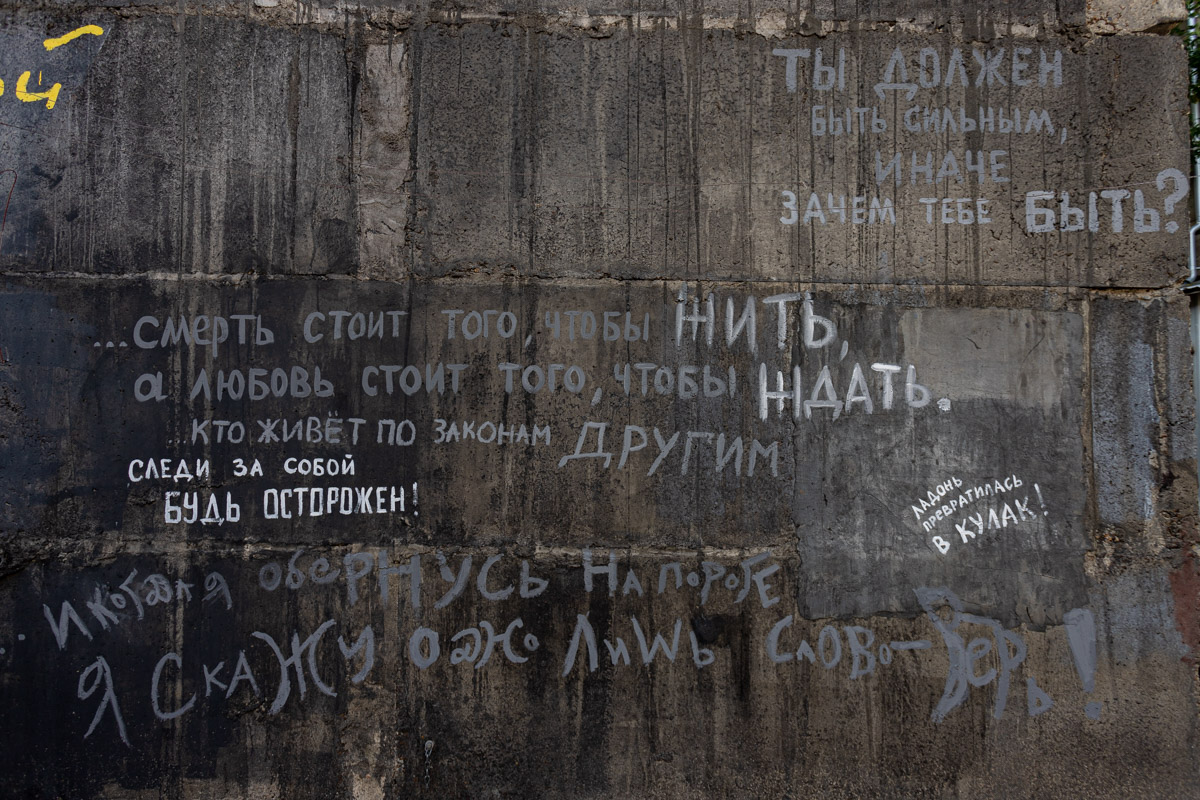 ой
ТЫ ДОЛЖЕН
БЫТЬ СИЛЬНЫМ,
ИНАЧЕ
ЗАЧЕМ ТЕБЕ БЫТЬ?
...смерть стоит того, чтобы ЖИТЬ,
а любовь стоит того, чтобы ЖДАТЬ.
...КТО ЖИВЁТ ПО ЗАКОНАМ ДРУГИМ
СЛЕДИ ЗА СОБОЙ
БУДЬ ОСТОРОЖЕН!
ЛАДОНЬ
ПРЕВРАТИЛАСЬ
В КУЛАК!
..И когда я обернусь на пороге
Я скажу одно лишь слово - Верь!